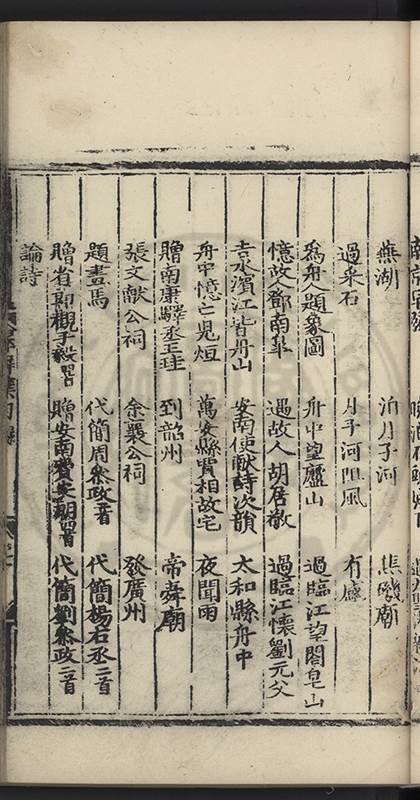 蕪湖　泊月子河　焦磯廟
過采石　月子河阻風　有感
爲舟人題象圖　舟中望廬山　過臨江望閣皂山
憶故人鄧南皐　過故人胡居敬　過臨江懷劉元父
吉水濱江皆舟山　安南使獻詩次韻　太和縣舟中
舟中憶亡兒烜　萬安縣賈相故宅　夜聞雨
贈南康驛丞王珪　到韶州　帝舜廟
張文獻公祠　余襄公祠　發廣州
題畫馬　代簡周叅政二首　代簡楊右丞二首
贈省郎觀子毅二首　贈安南　代簡劉叅政二首
論詩